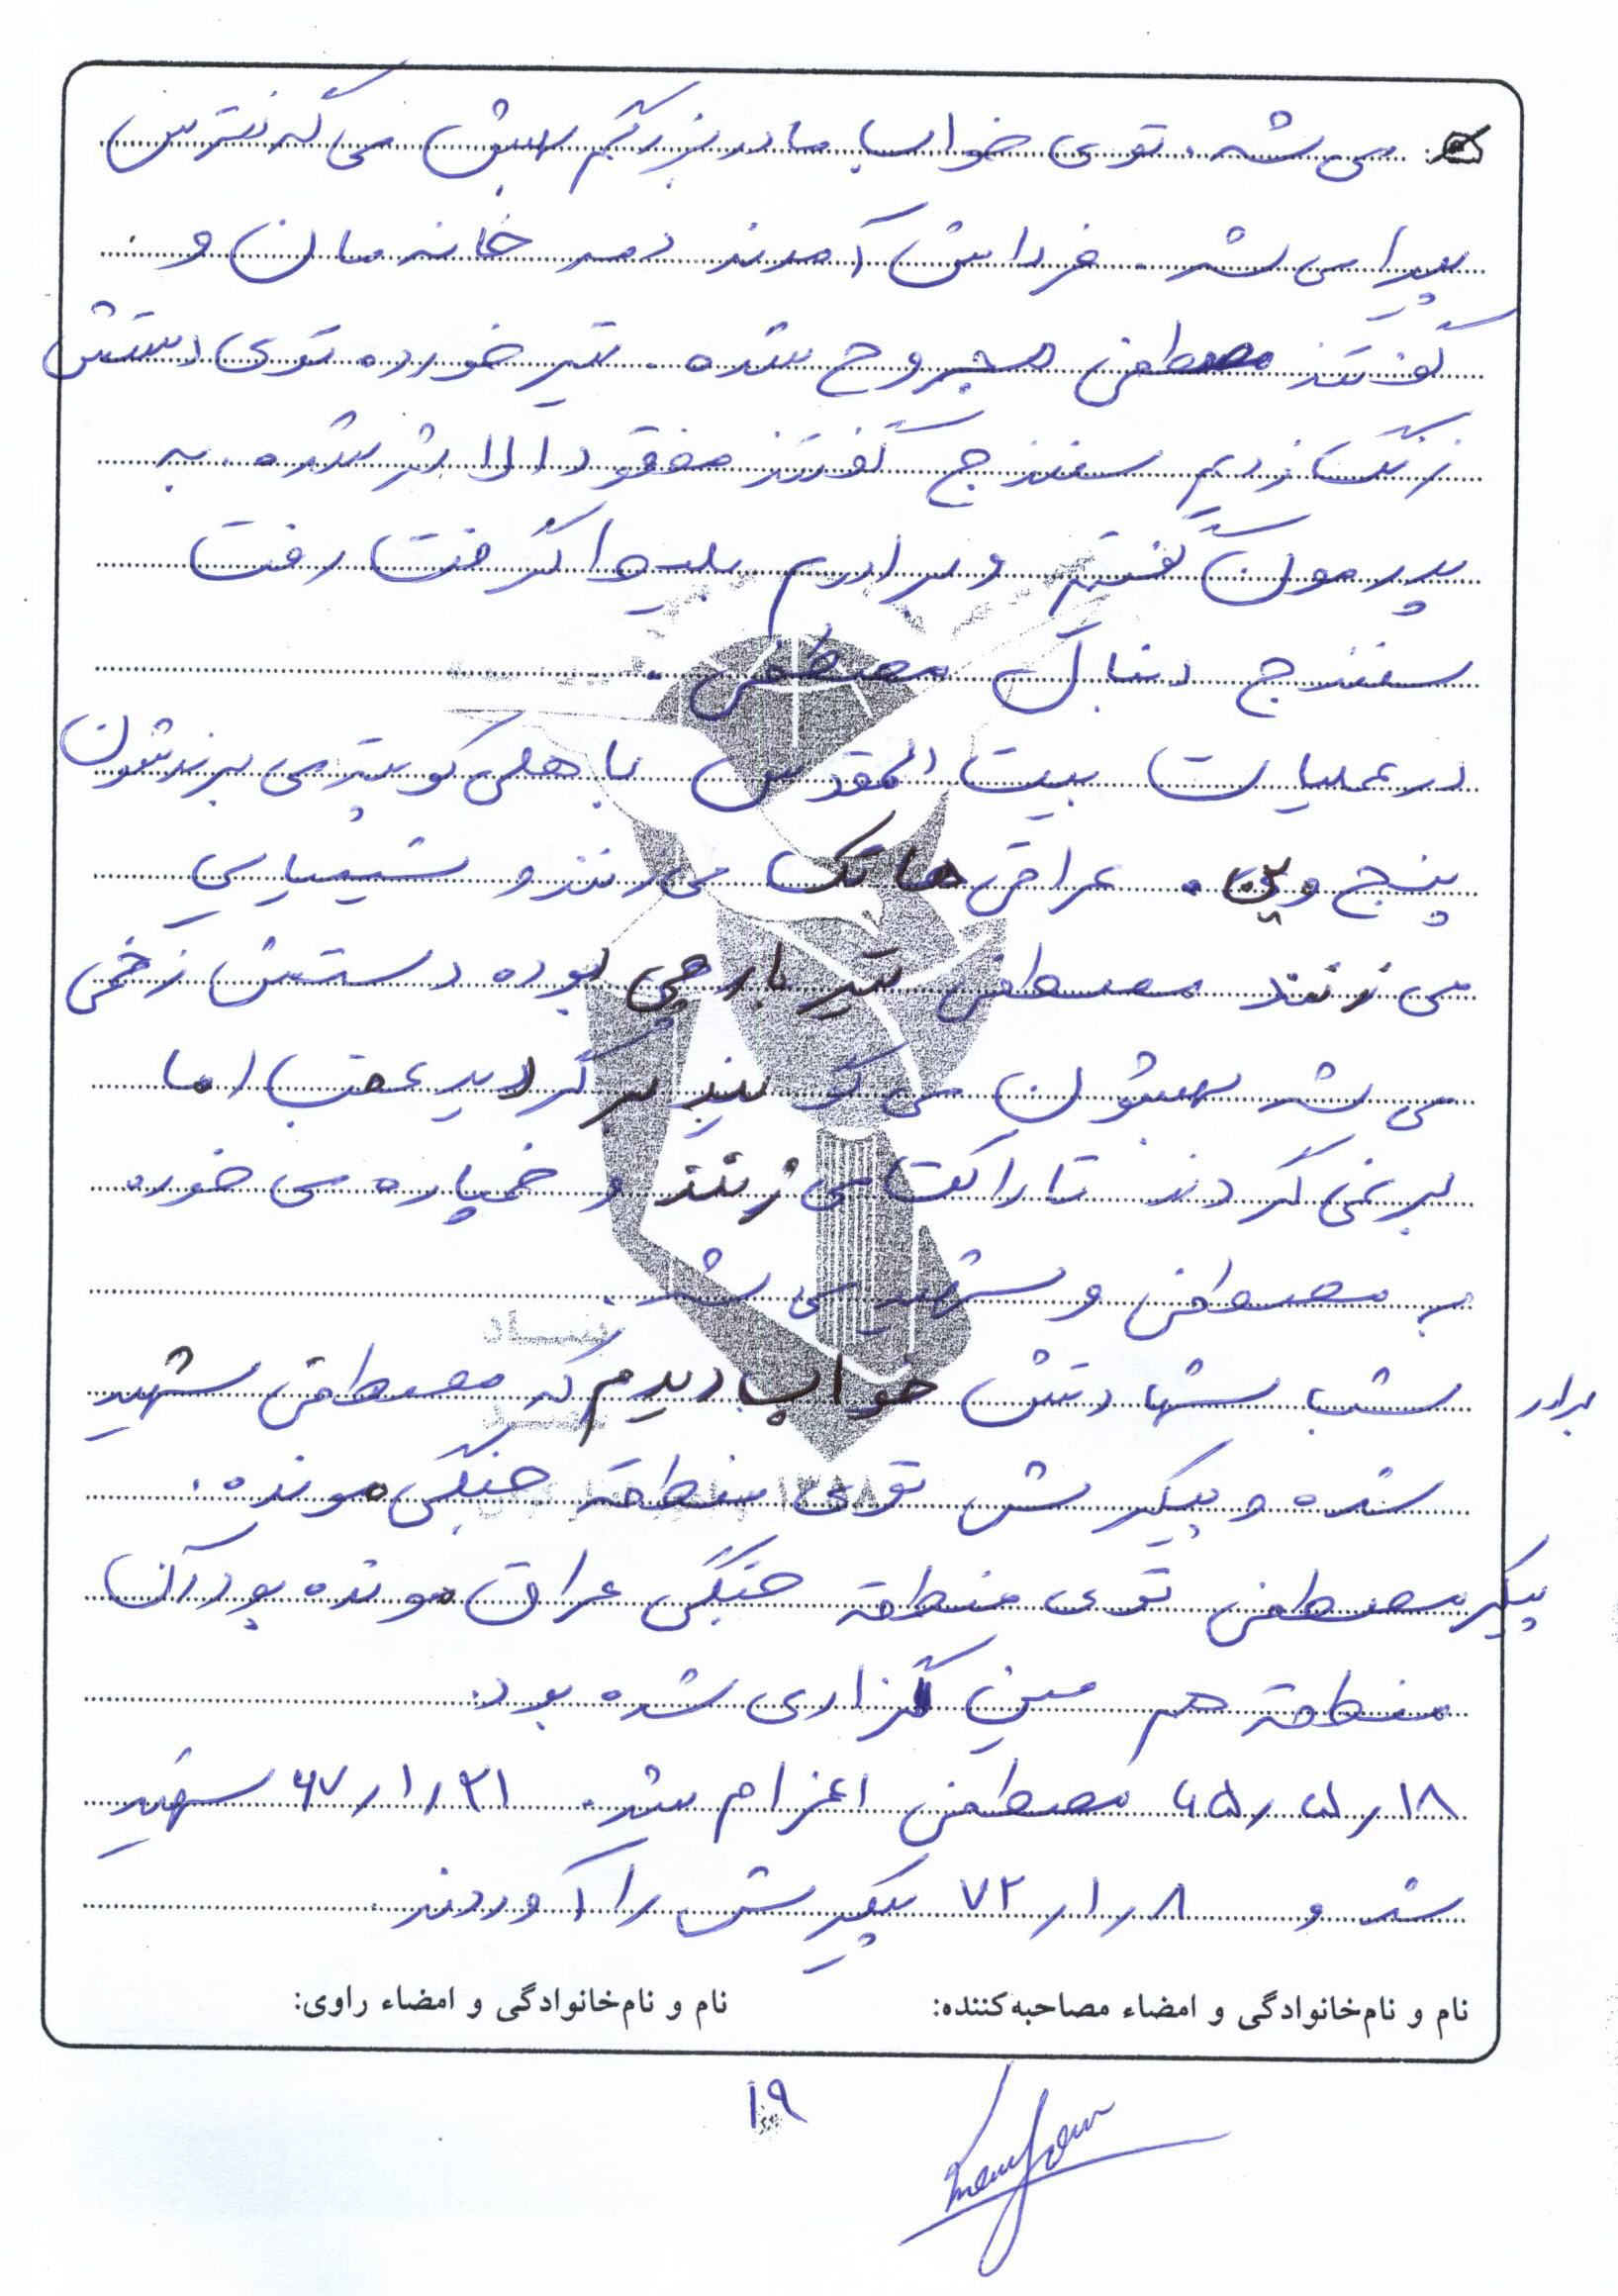 می‌شه. توی خواب مادربزرگم بهش می‌گه نترس
پیدا می‌شه. فرداش آمدند دمه خانه مان و
گفتند مصطفی مجروح شده. تیر خورده توی دستش
زنگ زدیم سنندج گفتند مفقود الاثر شده. به
پدرمون گفتیم و برادرم بلیط گرفت رفت
سنندج دنبال مصطفی.
در عملیات بیت المقدس با هلی کوپتر می برندشون
پنج وین. عراقی ها تک می زنند و شیمیایی
می زنند مصطفی تیر بارچی بوده دستش زخمی
می شه بهشون می گویند برگردید عقب اما
برنمی گردند تا راکت می زنند و خمپاره می خوره
به مصطفی و شهید می شه.
برادر شب شهادتش خواب دیدم که مصطفی شهید
شده و پیکرش توی منطقه جنگی مونده.
پیکر مصطفی توی منطقه جنگی عراق مونده بود آن
منطقه هم مین گزاری شده بود.
۱۸ر۵ر۶۵ مصطفی اعزام شد. ۳۱ر۱ر۶۷ شهید
شد و ۸ر۱ر۷۲ پیکرش را آوردند.
نام و نام‌خانوادگی و امضاء مصاحبه‌کننده: نام و نام‌خانوادگی و امضاء راوی:
۱۹